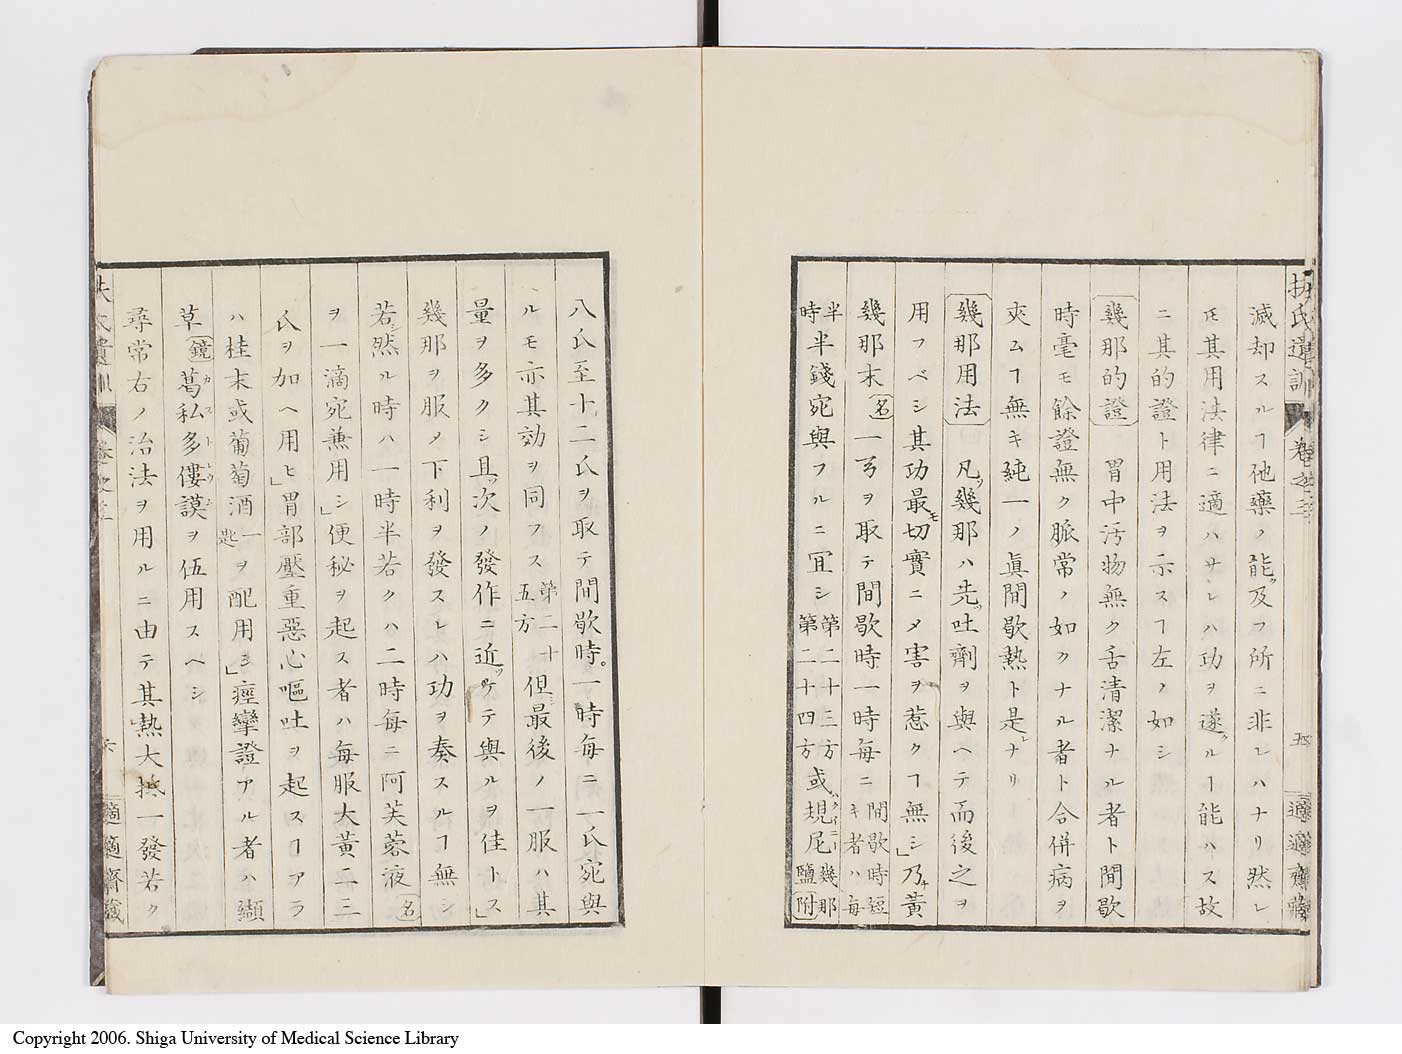 扶氏遺訓 卷之三 五 適適齋藏
滅却スルヿ他藥ノ能及フ所ニ非レハナリ然レ
𪜈其用法律ニ適ハサレハ功ヲ遂ルヿ能ハス故
ニ其的證ト用法ヲ示スヿ左ノ如シ
幾那的證 胃中汚物無ク舌清潔ナル者ト間歇
時毫モ餘證無ク脈常ノ如クナル者ト合併病ヲ
夾ムヿ無キ純一ノ眞間歇熱ト是ナリ
幾那用法 凡幾那ハ先吐劑ヲ與ヘテ而後之ヲ
用フベシ其功最モ切實ニメ害ヲ惹クヿ無シ」乃チ黃
幾那末名一弓ヲ取テ間歇時一時毎ニ間歇時短キ者ハ毎
半時半錢宛與フルニ宜シ第二十三方第二十四方或規尼幾那鹽附
八氏至十二氏ヲ取テ間歇時。一時毎ニ一氏宛與
ルモ亦其効ヲ同フス第二十五方但シ最後ノ一服ハ其
量ヲ多クシ且次ノ發作ニ近ツケテ與ルヲ佳トス」
幾那ヲ服メ下利ヲ發スレハ功ヲ奏スルヿ無シ
若シ然ル時ハ一時半若クハ二時毎ニ阿芙蓉液名
ヲ一滴宛兼用シ」便秘ヲ起ス者ハ毎服大黃二三
氏ヲ加ヘ用ヒ」胃部壓重惡心嘔吐ヲ起スヿアラ
ハ桂末或葡萄酒一匙ヲ配用シ」痙攣證アル者ハ纈
草鏡葛私多僂謨ヲ伍用スヘシ
尋常右ノ治法ヲ用ルニ由テ其熱大抵一發若ク
扶氏遺訓 卷之三 六 適適齋藏
Copyright 2006. Shiga University of Medical Science Library